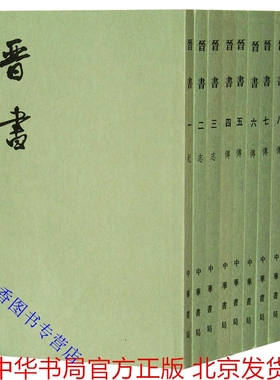 晉書
晉書 一 紀
晉書 二 志
晉書 三 志
晉書 四 傳
晉書 五 傳
晉書 六 傳
晉書 七 傳
晉書 八 傳
中華書局
中華書局
中華書局
中華書局
中華書局
中華書局
中華書局
中華書局
香图书专营店
中华书局官方正版 北京发货